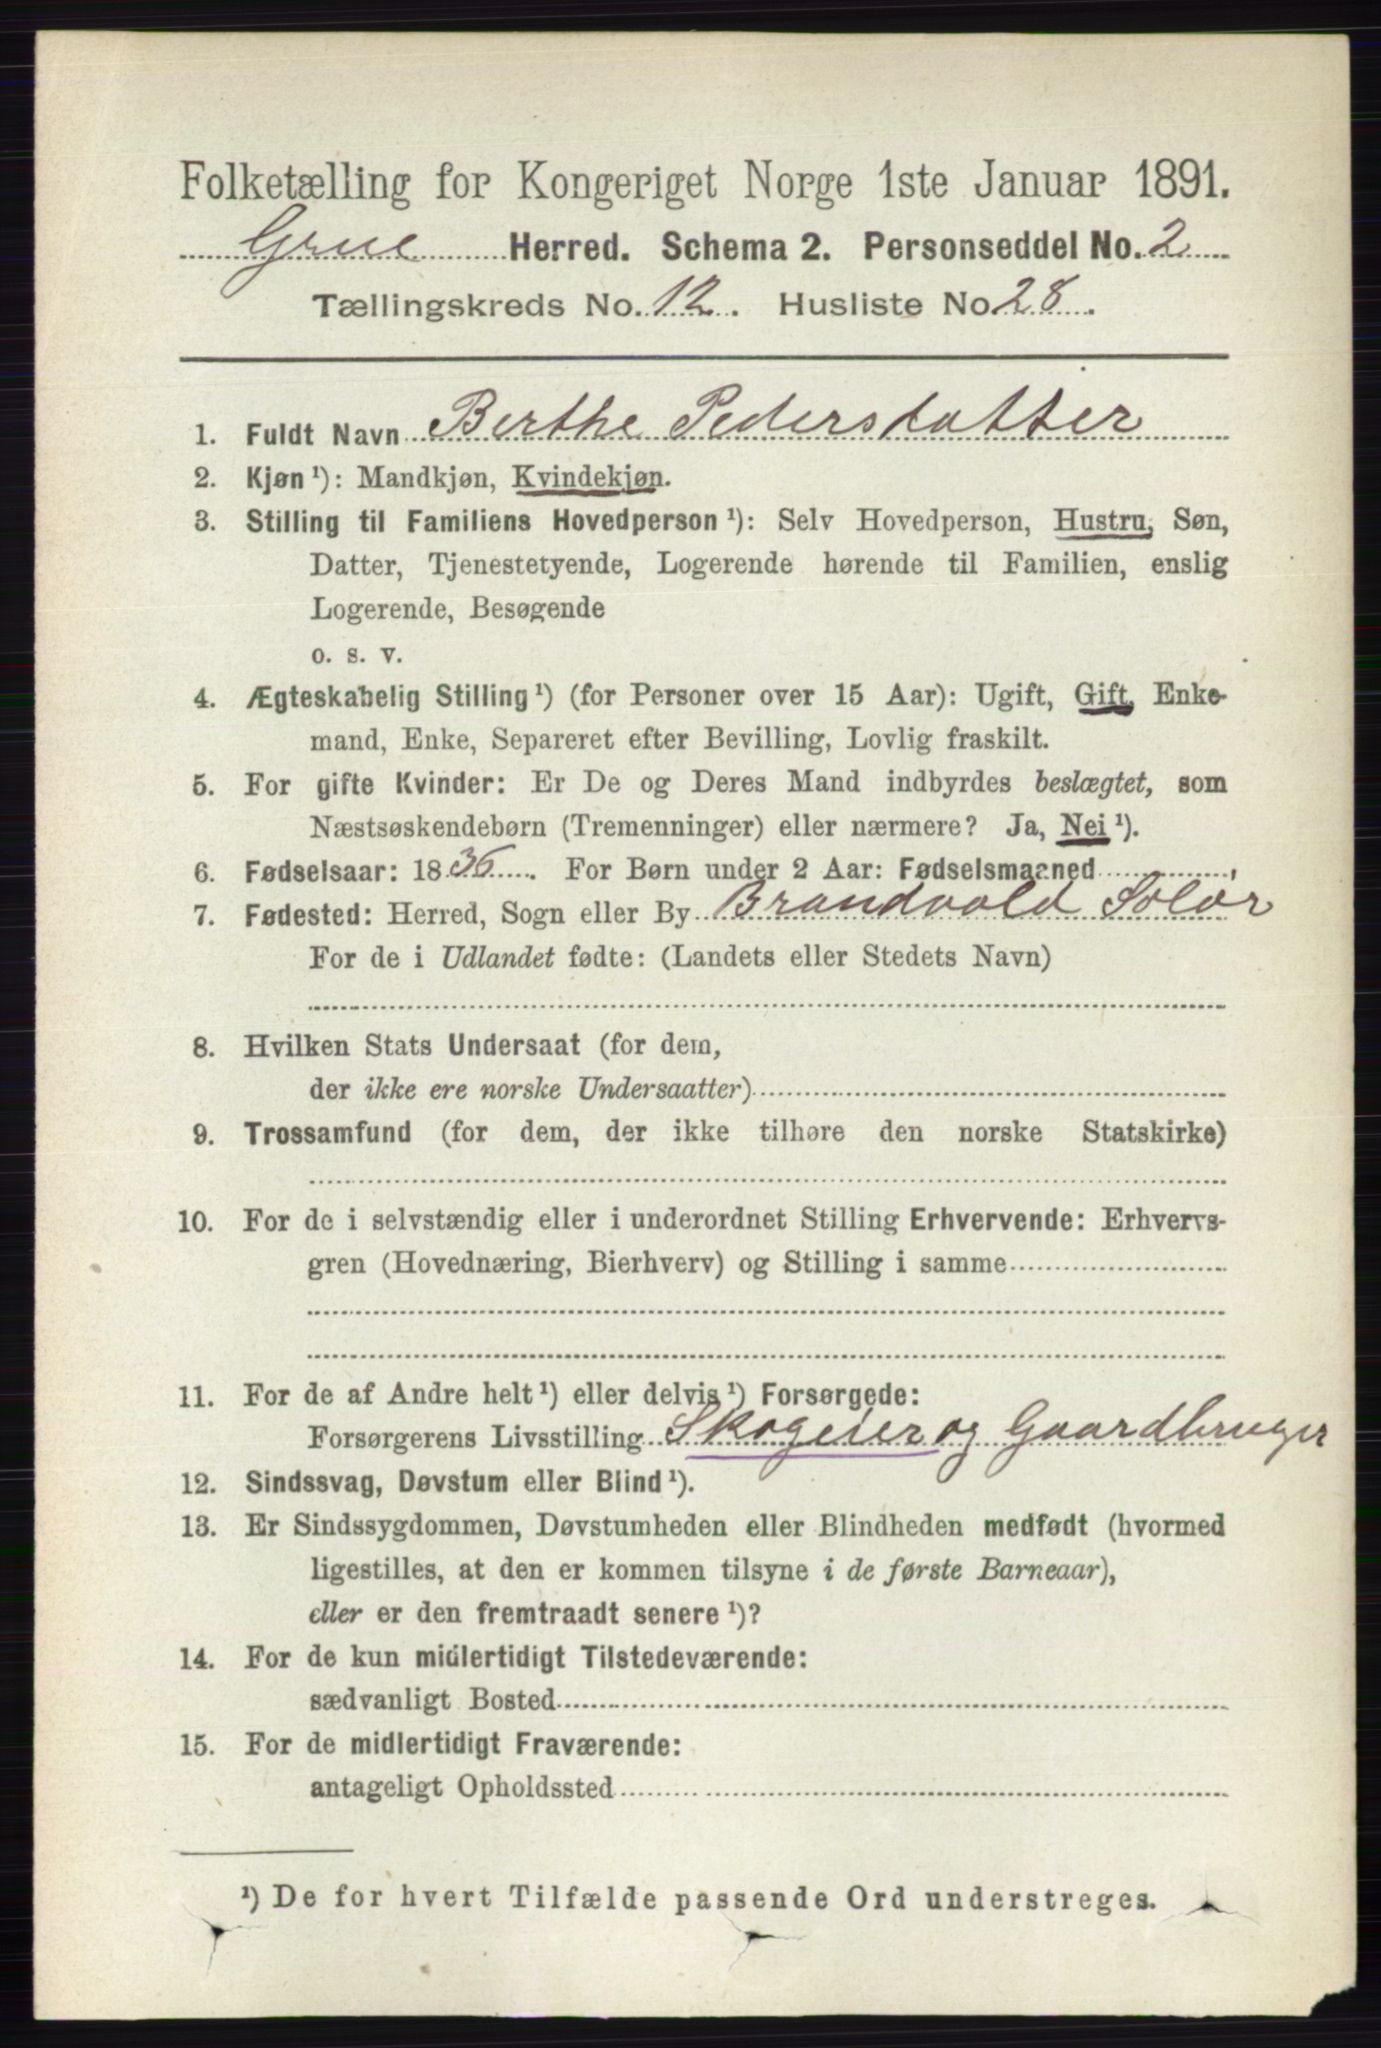 Folketælling for Kongeriget Norge 1ste Januar 1891.
Grue Herred. Schema 2. Personseddel No. 2
Tællingskreds No. 12. Husliste No 28.
1. Fuldt Navn Berthe Pedersdatter
2. Kjøn ¹): Mandkjøn, Kvindekjøn.
3. Stilling til Familiens Hovedperson ¹): Selv Hovedperson, Hustru, Søn,
Datter, Tjenestetyende, Logerende hørende til Familien, enslig
Logerende, Besøgende
o. s. v.
4. Ægteskabelig Stilling ¹) (for Personer over 15 Aar): Ugift, Gift, Enke-
mand, Enke, Separeret efter Bevilling, Lovlig fraskilt.
5. For gifte Kvinder: Er De og Deres Mand indbyrdes beslægtet, som
Næstsøskendebørn (Tremenninger) eller nærmere? Ja, Nei ¹).
6. Fødselsaar: 1836. For Børn under 2 Aar: Fødselsmaaned
7. Fødested: Herred, Sogn eller By Brandvold Solør
For de i Udlandet fødte: (Landets eller Stedets Navn)
8. Hvilken Stats Undersaat (for dem,
der ikke ere norske Undersaatter)
9. Trossamfund (for dem, der ikke tilhøre den norske Statskirke)
10. For de i selvstændig eller i underordnet Stilling Erhvervende: Erhvervs-
gren (Hovednæring, Bierhverv) og Stilling i samme
11. For de af Andre helt ¹) eller delvis ¹) Forsørgede:
Forsørgerens Livsstilling Skogeier og Gaardbruger
12. Sindssvag, Døvstum eller Blind ¹).
13. Er Sindssygdommen, Døvstumheden eller Blindheden medfødt (hvormed
ligestilles, at den er kommen tilsyne i de første Barneaar),
eller er den fremtraadt senere ¹)?
14. For de kun midlertidigt Tilstedeværende:
sædvanligt Bosted
15. For de midlertidigt Fraværende:
antageligt Opholdssted
¹) De for hvert Tilfælde passende Ord understreges.